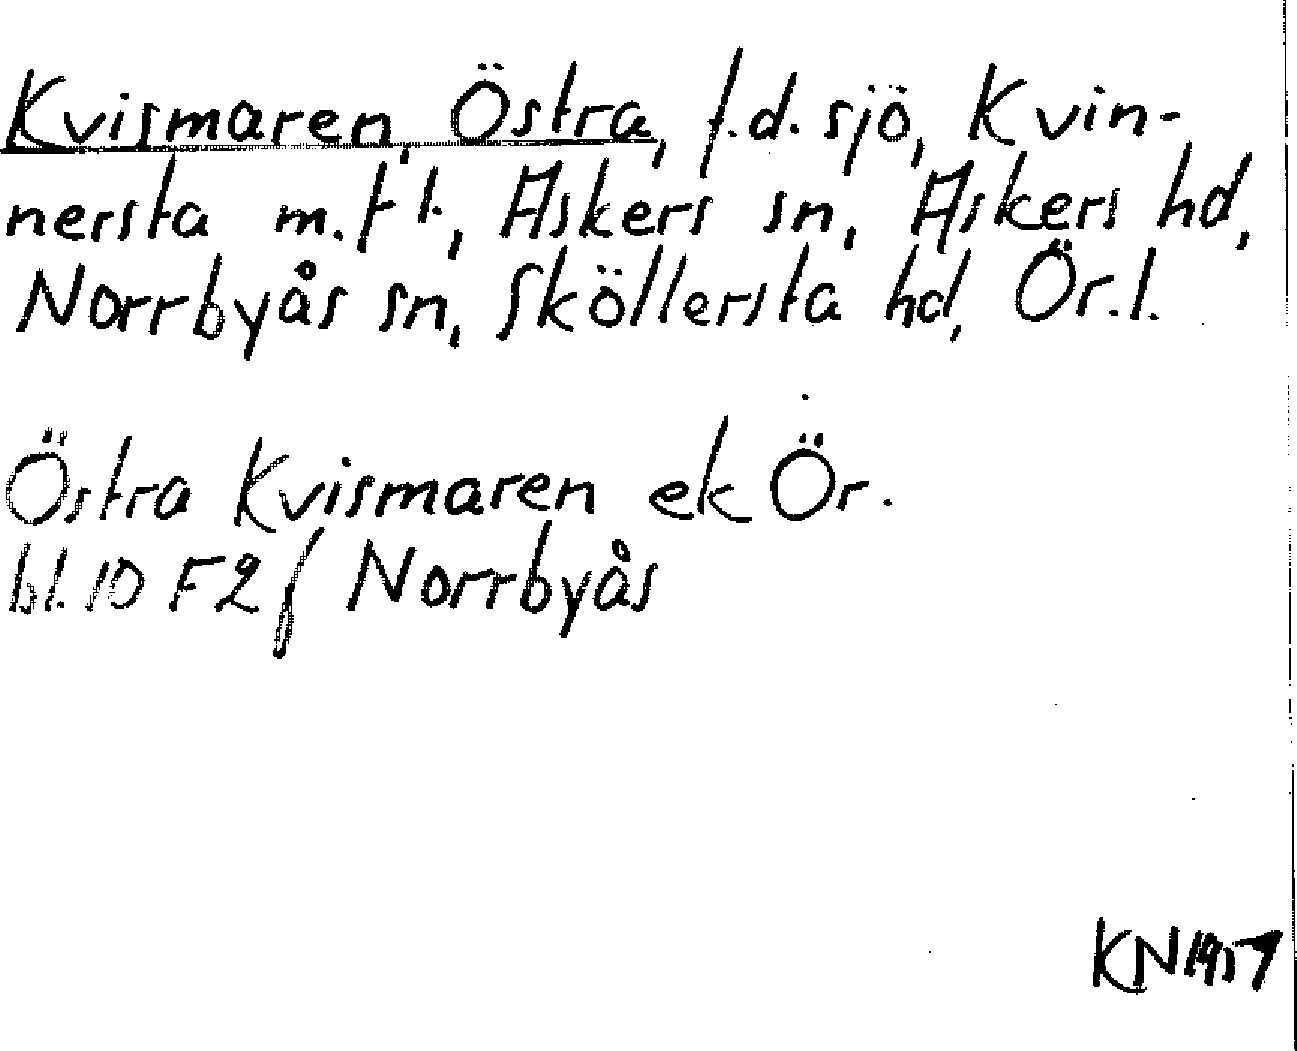 Kvismaren, Östra, f.d. sjö, Kvin-
nersta m.fl., Askers sn, Askers hd,
Norrbyås sn, Sköllersta hd, Ör.l.
Östra Kvismaren ek Ör.
bl. 10 F2f Norrbyås
KN 1957